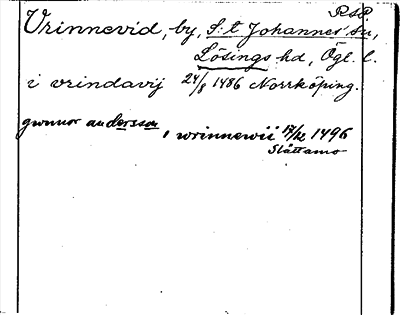 RSP.
Vrinnevid, by, S:t Johannes sn,
Lösings hd, Ögl. l.
i vrindavij 24/8 1486 Norrköping.
gwnnor andersson, wrinnewii 17/12 1496
Slåttamo